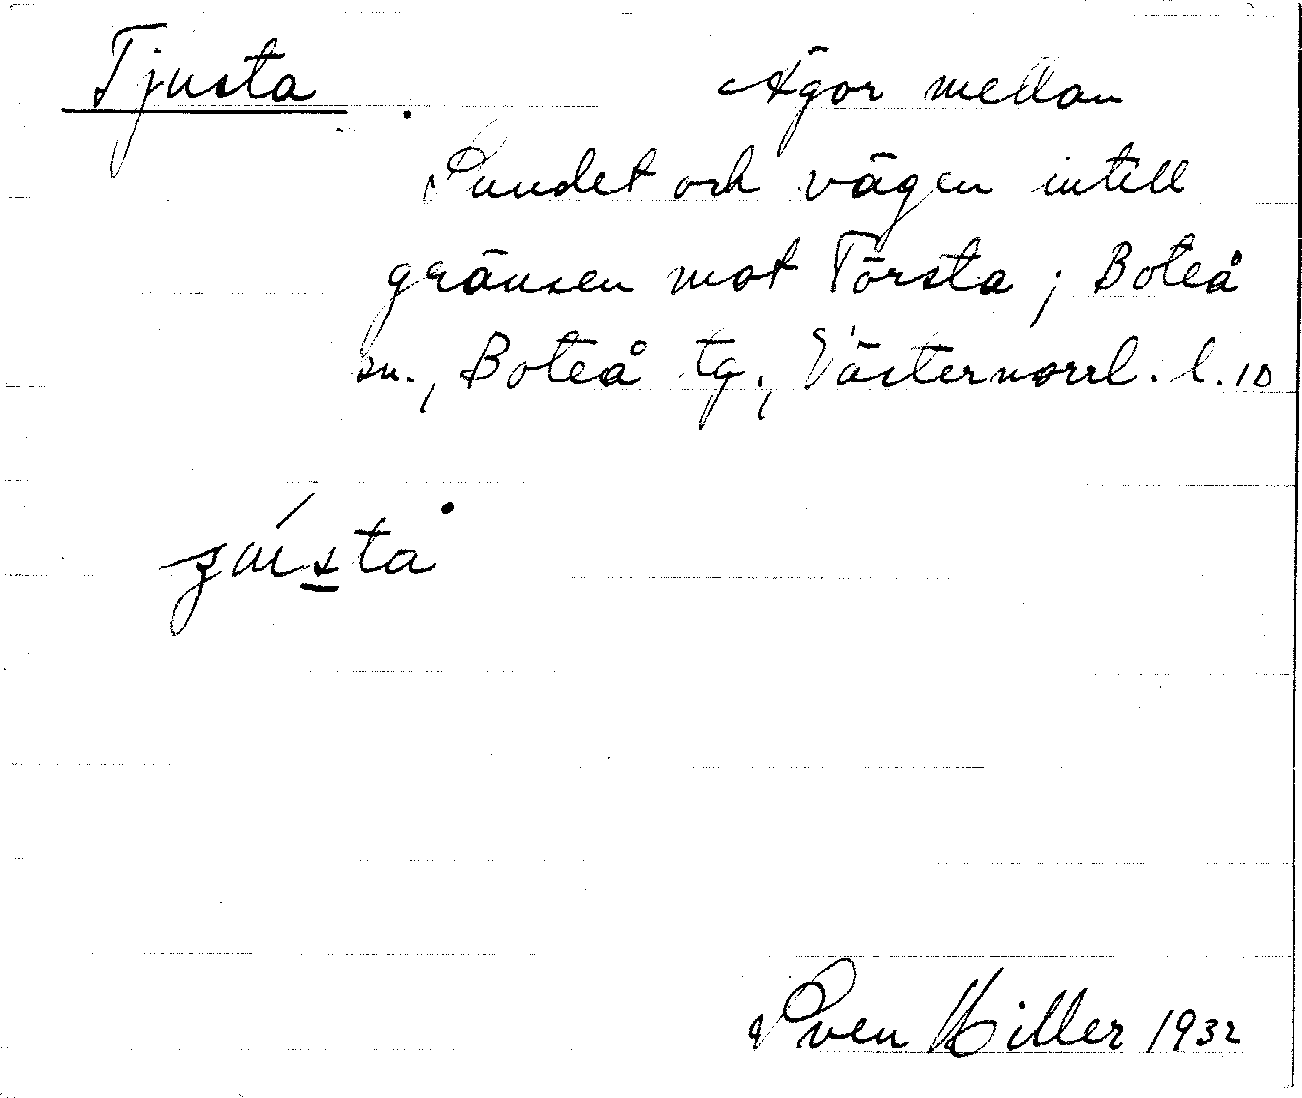 Tjusta . Ägor mellan
Sundet och vägen intill
gränsen mot Törsta; Boteå
sn., Boteå tg., Västernorrl. l. 10
Sven Hiller 1932